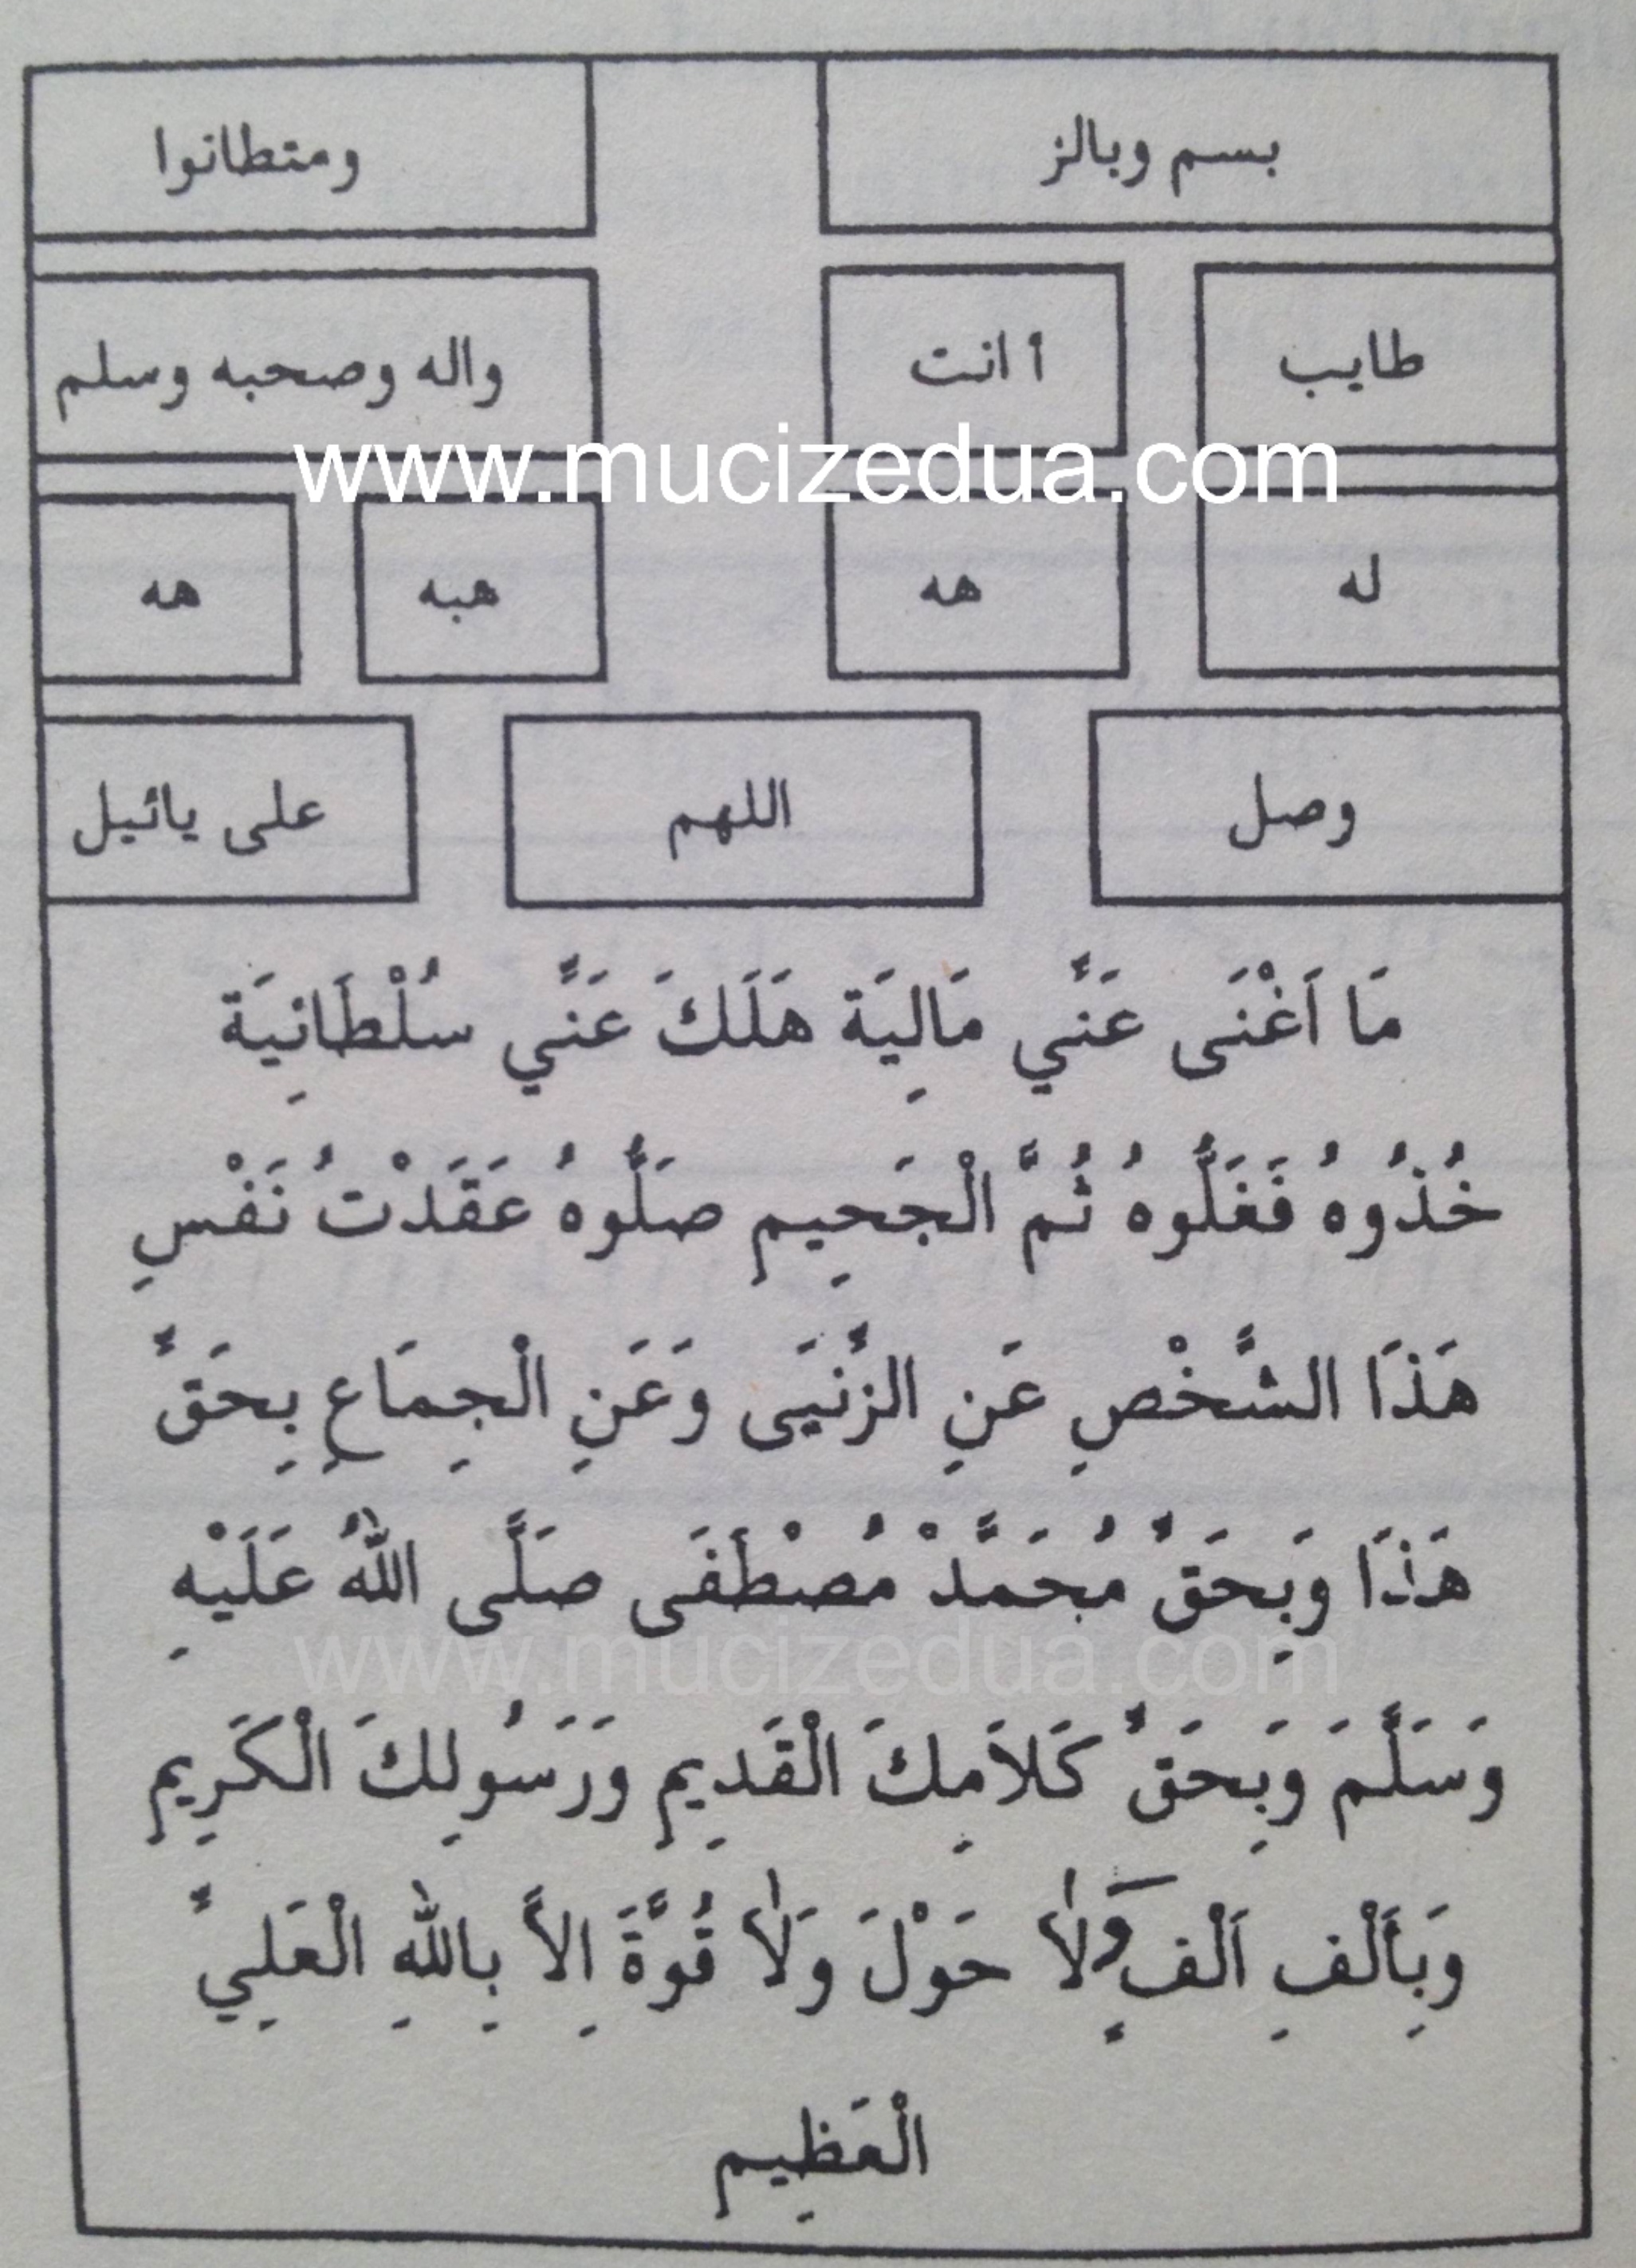 بسم وبالز ومتطانوا
طايب أ انت واله وصحبه وسلم
www.mucizedua.com
له هه هبه هه
وصل اللهم على يائيل
مَا اَغْنَى عَنَّي مَالِيَة هَلَكَ عَنَّي سُلْطَانِيَة
خُذُوهُ فَغَلُّوهُ ثُمَّ الْجَحِيم صَلُّوهُ عَقَدْتُ نَفْسِ
هَذَا الشَّخْصِ عَنِ الزَّنيَى وَعَنِ الْجِمَاعِ بِحَقَّ
هَذَا وَبِحَقَّ مُحَمَّدْ مُصْطَفَى صَلَّى اللهُ عَلَيْهِ
www.mucizedua.com
وَسَلَّمَ وَبِحَقَّ كَلاَمِكَ الْقَدِيم وَرَسُولِكَ الْكَرِيم
وَبِأَلْفِ اَلْفٍ وَلاٰ حَوْلَ وَلاٰ قُوَّةَ اِلاَّ بِاللهِ الْعَلِيَّ
الْعَظِيم